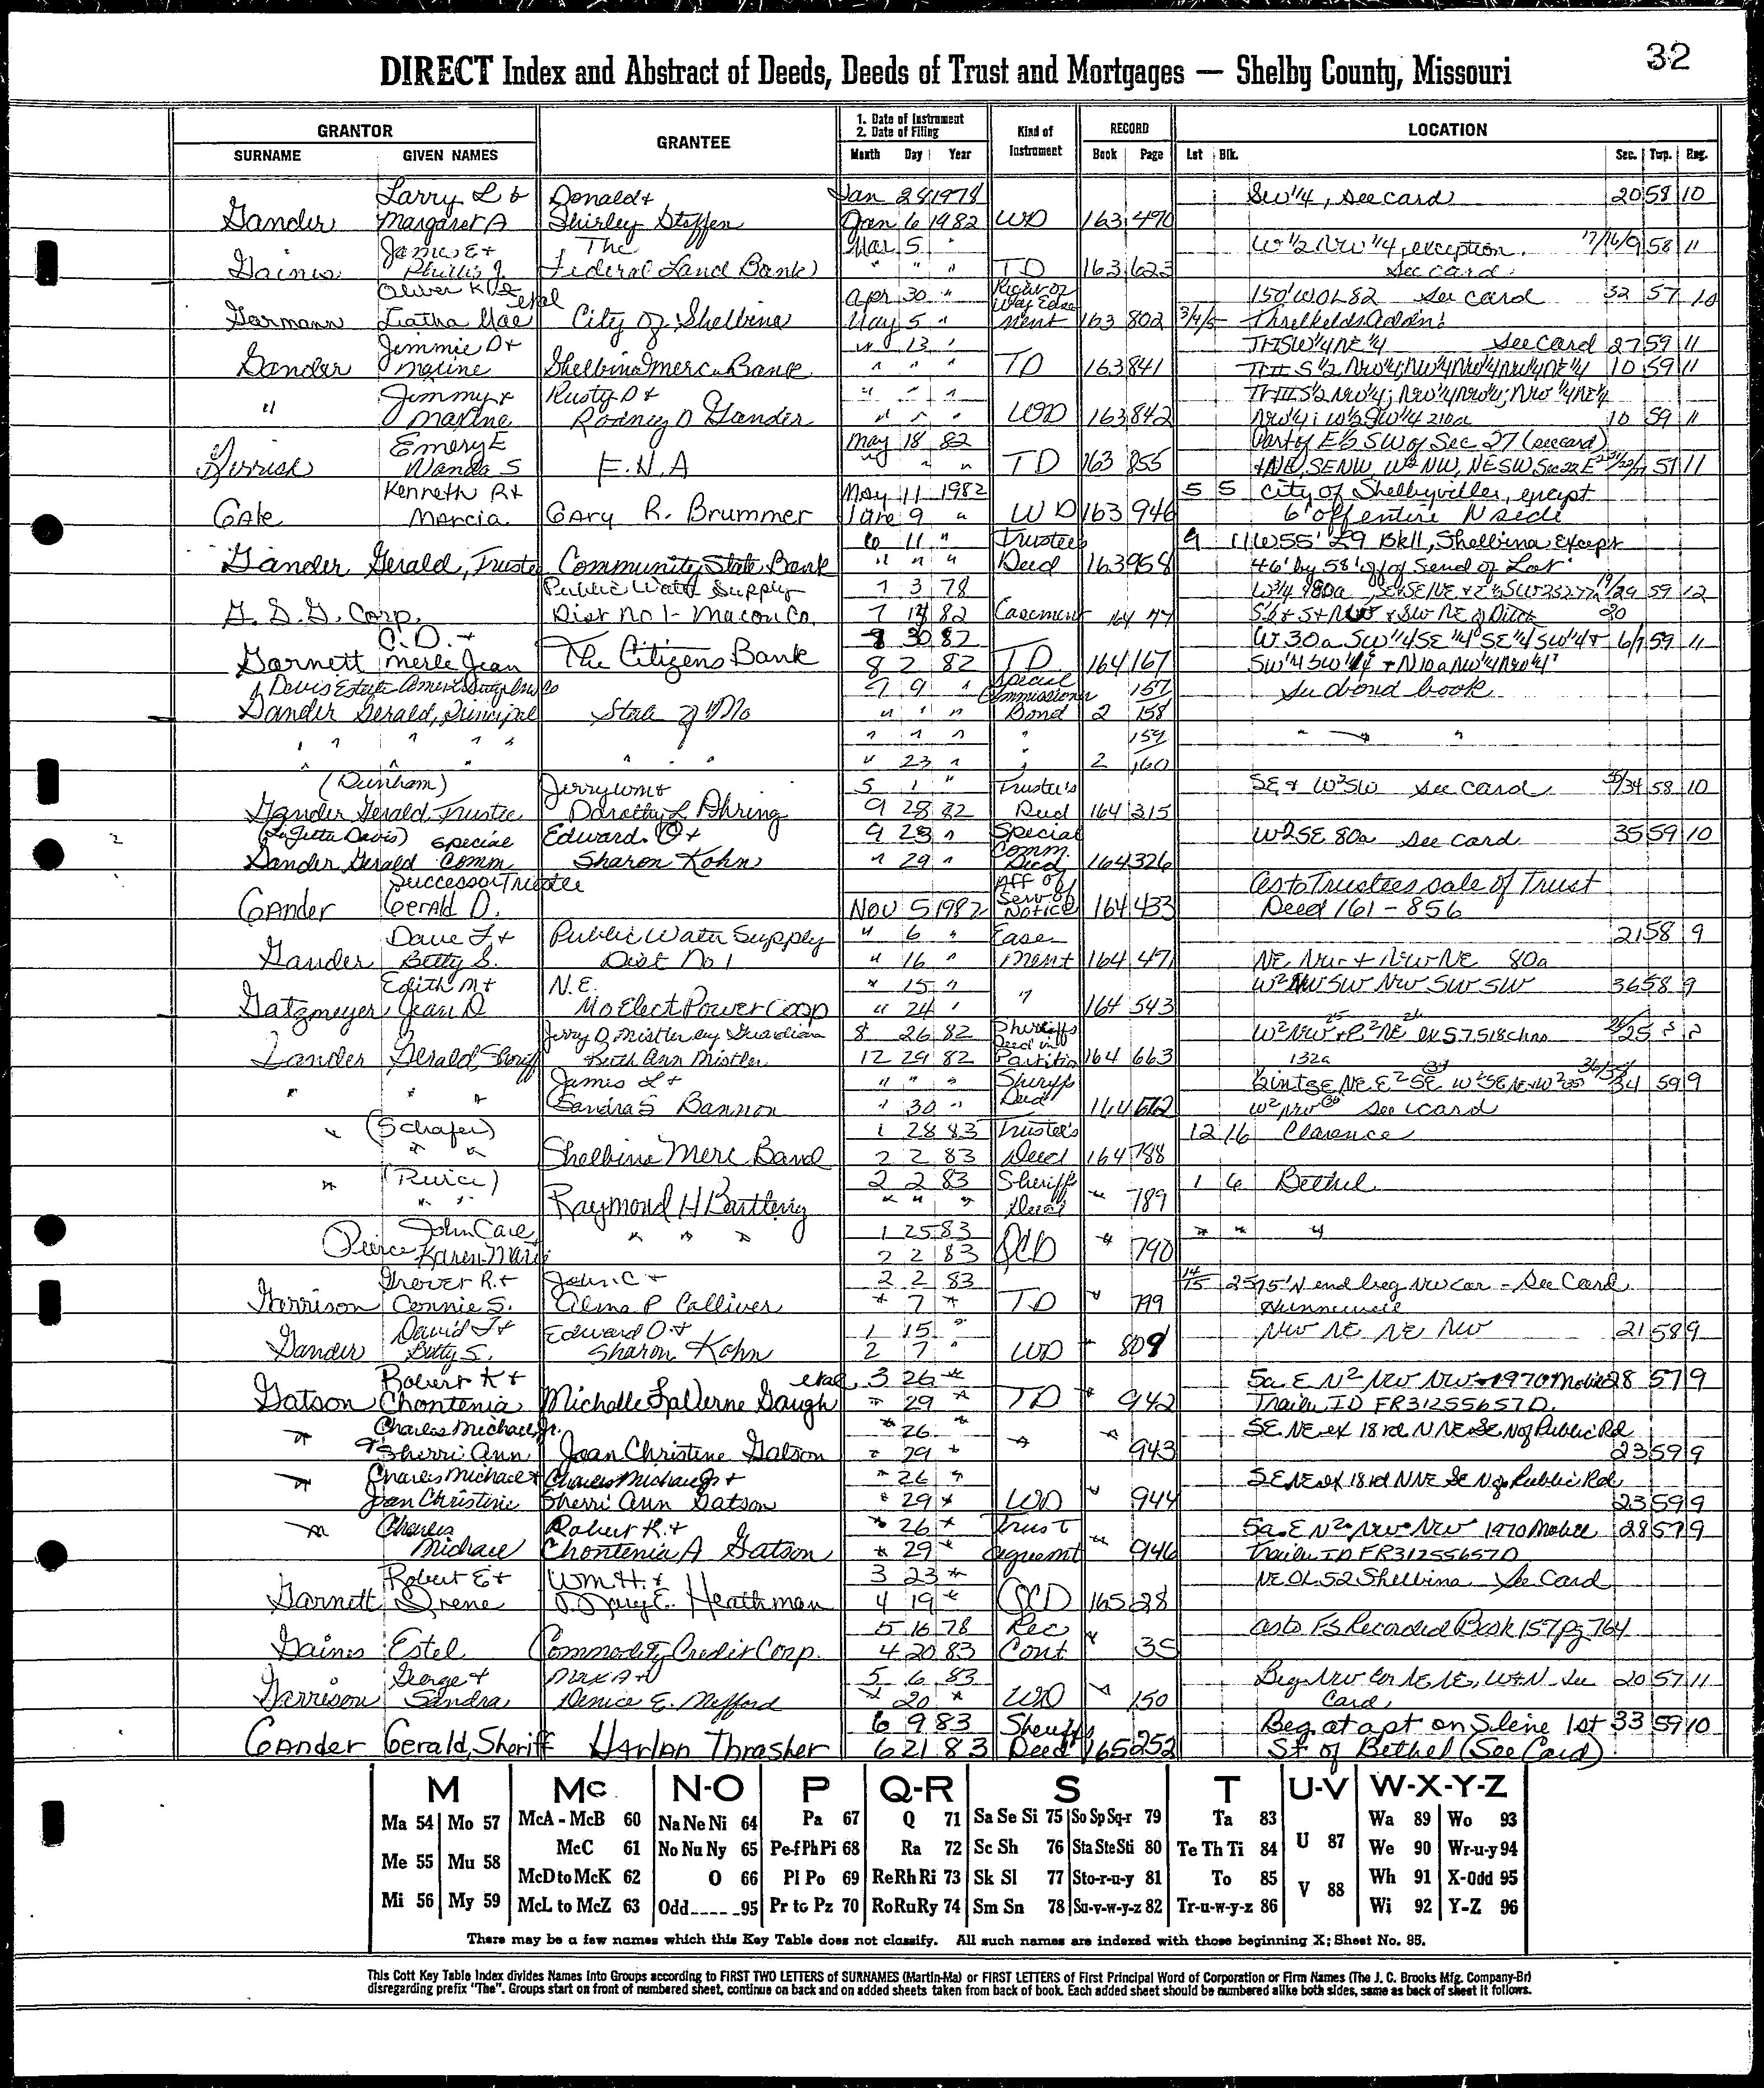 32
DIRECT Index and Abstract of Deeds, Deeds of Trust and Mortgages — Shelby County, Missouri
GRANTOR GRANTEE 1. Date of Instrument 2. Date of Filing Kind of Instrument RECORD LOCATION
SURNAME GIVEN NAMES Month Day Year Book Page Lot Blk. Sec. Twp. Rng.
Larry L & Donald & Jan 28 1978 SW 1/4, see card 20 58 10
Gander Margaret A Shirley Steffen Jan 6 1982 WD 163 490
James E + The Mar 5 " W 1/2 NW 1/4, exception. 17/16/9 58 11
Gaines Phillis J. Federal Land Bank " " " TD 163 623 See card.
Oliver K etal Apr 30 " Right of Way Ease 150' W OL 82 See card 32 57 10
Garmann Latha Mae City of Shelbina May 5 " ment 163 802 3/4/5 Threlkelds Addn.
Jimmie D + " 13 " See Card 27 59 11
Gander Maxine Shelbina Merc. Bank " " " TD 163 841 10 59 11
Jimmy + Rusty D + " " "
" Maxine Rodney D Gander " " " WD 163 842 NW 1/4; W 1/2 SW 1/4 210a 10 59 11
Emery E May 18 82 Part of E 1/2 SW of Sec 27 (see card)
Gerrish Wanda S F.N.A " " " TD 163 855 57 11
Kenneth R + May 11 1982 5 5 City of Shelbyville, except
Gale Marcia Gary R. Brummer June 9 " WD 163 946 6' off entire N side
6 11 " Trustees 9 11 W 55' L9 Bk 11, Shelbina Except
Gander Gerald, Trustee Community State Bank " " " Deed 163 958 46' by 58' off of S end of Lot
Public Water Supply 7 3 78 59 12
G. S. G. Corp. Dist No 1 - Macon Co. 7 14 82 Easement 164 77
C. D. + 30 82 W 30a SW 1/4 SE 1/4 SE 1/4 SW 1/4 + 6/7 59 11
Garnett Merle Jean The Citizens Bank 8 2 82 TD 164 167 SW 1/4 SW 1/4 + N 10a NW 1/4 NW 1/4
Davis Estate 9 9 " Special Commissioner 157 See bond book
Gander Gerald, Principal State of Mo " " " Bond 2 158
" " " " " " " " 159 " "
" " " " " " 23 " " 2 160
(Dunham) Jerry Wm & 5 1 " Trustee's SE + W2SW See card 35/34 58 10
Gander Gerald Trustee Dorothy L Ohring 9 28 82 Deed 164 315
(LaJetta Davis) Special Edward O + 9 28 " Special Comm. W2SE 80a See card 35 59 10
Gander Gerald Comm Sharon Kohn " 29 " Deed 164 326
Successor Trustee Aff of Serv of as to Trustees sale of Trust
Gander Gerald D. Nov 5 1982 Notice 164 433 Deed 161 - 856
Dave J + Public Water Supply " 6 " Ease 21 58 9
Gander Betty S. Dist No 1 " 16 " ment 164 471 NE NW + NW NE 80a
Edith M + N.E. " 15 " W2 NW SW NW SW SW 36 58 9
Gatzmeyer Jean D Mo Elect Power Coop " 24 " " 164 543
Jerry D, Mistler by Guardian 8 26 82 Sheriffs Deed in
Gander Gerald Sheriff Ruth Ann Mistler 12 29 82 Partition 164 663 132a
James L + " " " Sheriffs 34 59 9
" " " Sandra S Bannon " 30 " Deed 164 W2 NW See card
" (Schafer) 1 28 83 Trustee's 12 16 Clarence
" " Shelbina Merc Bank 2 2 83 Deed 164 788
" (Peirce) 2 2 83 Sheriff's 1 6 Bethel
" " Raymond H Bartleriy " " " Deed " 789
John Carl 1 25 83 " " "
Peirce Karen Marie " " " 2 2 83 QCD " 790
Grover R. + John C + 2 2 83 14/15 25 75' N end beg NW cor - See Card
Garrison Connie S. Alma P Colliver " 7 " TD " 799 Hunnewell
David J + Edward O + 1 15 " NW NE NE NW 21 58 9
Gander Betty S. Sharon Kohn 2 7 " WD " 809
Robert K + etal 3 26 " 5a E N2 NW NW - 1970 Mobile 28 57 9
Gatson Chontenia Michelle LaVerne Gaugh " 29 " TD " 942 Trailer ID FR31255657D.
" Charles Michael Jr. " 26 " " SE NE ex 18 rd N NE SE N of Public Rd
& Sherri Ann Joan Christine Gatson " 29 " " 943 23 59 9
" Charles Michael & Charles Michael Jr + " 26 " SE NE ex 18 rd N NE SE N of Public Rd
Joan Christine Sherri Ann Gatson " 29 " WD " 944 23 59 9
" Charles Robert K. + " 26 " Trust 5a E N2 NW NW 1970 Mobile 28 57 9
Michael Chontenia A Gatson " 29 " Agreemt " 946 Trailer ID FR31255657D
Robert E + Wm H. + 3 23 " NE OL 52 Shelbina See Card
Garnett Irene Mary E. Heathman 4 19 " QCD 165 28
5 16 78 Rec as to FS Recorded Book 157 pg 764
Gaines Estel Commodity Credit Corp. 4 20 83 Cont " 35
George + Max A + 5 6 83 Beg NW Cor NE NE, W+N - See 20 57 11
Garrison Sandra Denice E. Mefford " 20 " WD " 150 Card
6 9 83 Sheriffs Beg. at a pt on S line 1st 33 59 10
Gander Gerald, Sheriff Harlan Thrasher 6 21 83 Deed 165 252 St of Bethel (See Card)
M Mc N-O P Q-R S T U-V W-X-Y-Z
Ma 54 Mo 57 McA - McB 60 Na Ne Ni 64 Pa 67 Q 71 Sa Se Si 75 So Sp Sq-r 79 Ta 83 U 87 Wa 89 Wo 93
Me 55 Mu 58 McC 61 No Nu Ny 65 Pe-f Ph Pi 68 Ra 72 Sc Sh 76 Sta Ste Sti 80 Te Th Ti 84 We 90 Wr-u-y 94
McD to McK 62 O 66 Pl Po 69 Re Rh Ri 73 Sk Sl 77 Sto-r-u-y 81 To 85 V 88 Wh 91 X-Odd 95
Mi 56 My 59 McL to McZ 63 Odd 95 Pr to Pz 70 Ro Ru Ry 74 Sm Sn 78 Su-v-w-y-z 82 Tr-u-w-y-z 86 Wi 92 Y-Z 96
There may be a few names which this Key Table does not classify. All such names are indexed with those beginning X; Sheet No. 95.
This Cott Key Table Index divides Names into Groups according to FIRST TWO LETTERS of SURNAMES (Martin-Ma) or FIRST LETTERS of First Principal Word of Corporation or Firm Names (The J. C. Brooks Mfg. Company-Br)
disregarding prefix "The". Groups start on front of numbered sheet, continue on back and on added sheets taken from back of book. Each added sheet should be numbered alike both sides, same as back of sheet it follows.